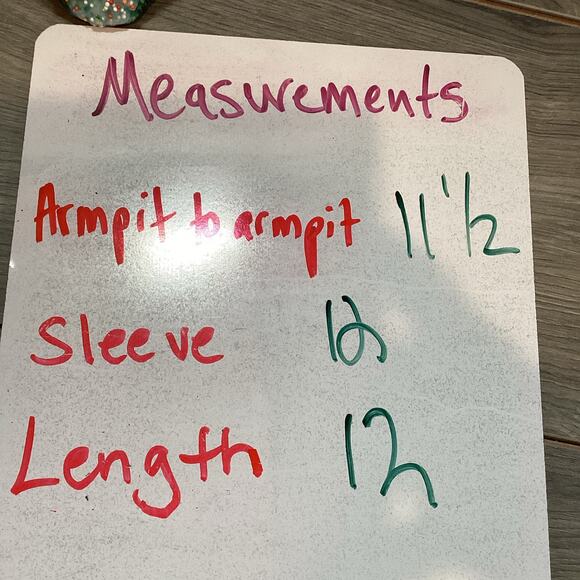 Measurements
Armpit to armpit 11 1/2
Sleeve
Length 12